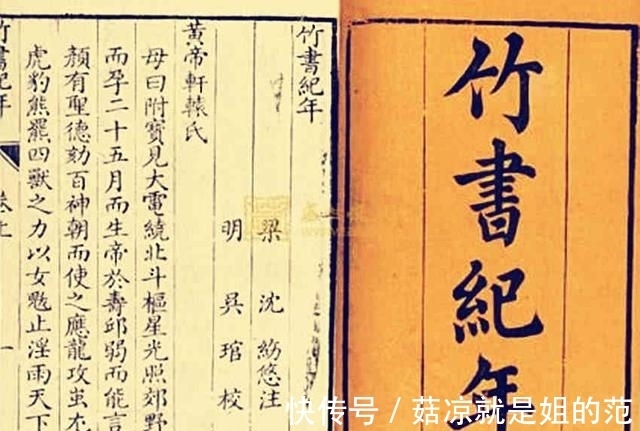 竹書紀年
竹書紀年
梁 沈 注
明 吳琯校
黃帝軒轅氏
母曰附寶見大電繞北斗樞星光照郊野
而孕二十五月而生帝於壽邱弱而能言
顏有聖德劾百神朝而使之應龍攻蚩尤
虎豹熊羆四獸之力以女魃止淫雨天下
竹書紀年 卷上 一
快传号 / 菇凉就是姐的范